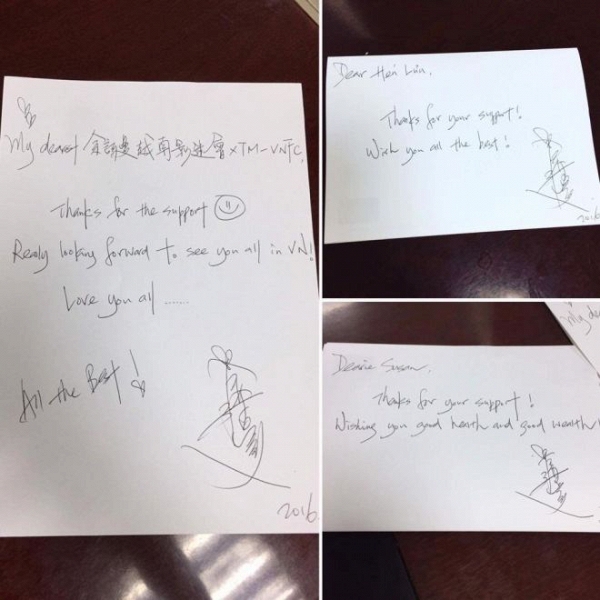 My dearest 金詩曼越南影迷會 XTM-VNFC,
Thanks for the support
Realy looking forward to see you all in VN!
Love you all ......
All the Best!
2016.
Dear Hen Luin,
Thanks for your support!
Wish you all the best!
2016.
Dearie Susan,
Thanks for your support!
Wishing you good heath and good wealth
My de